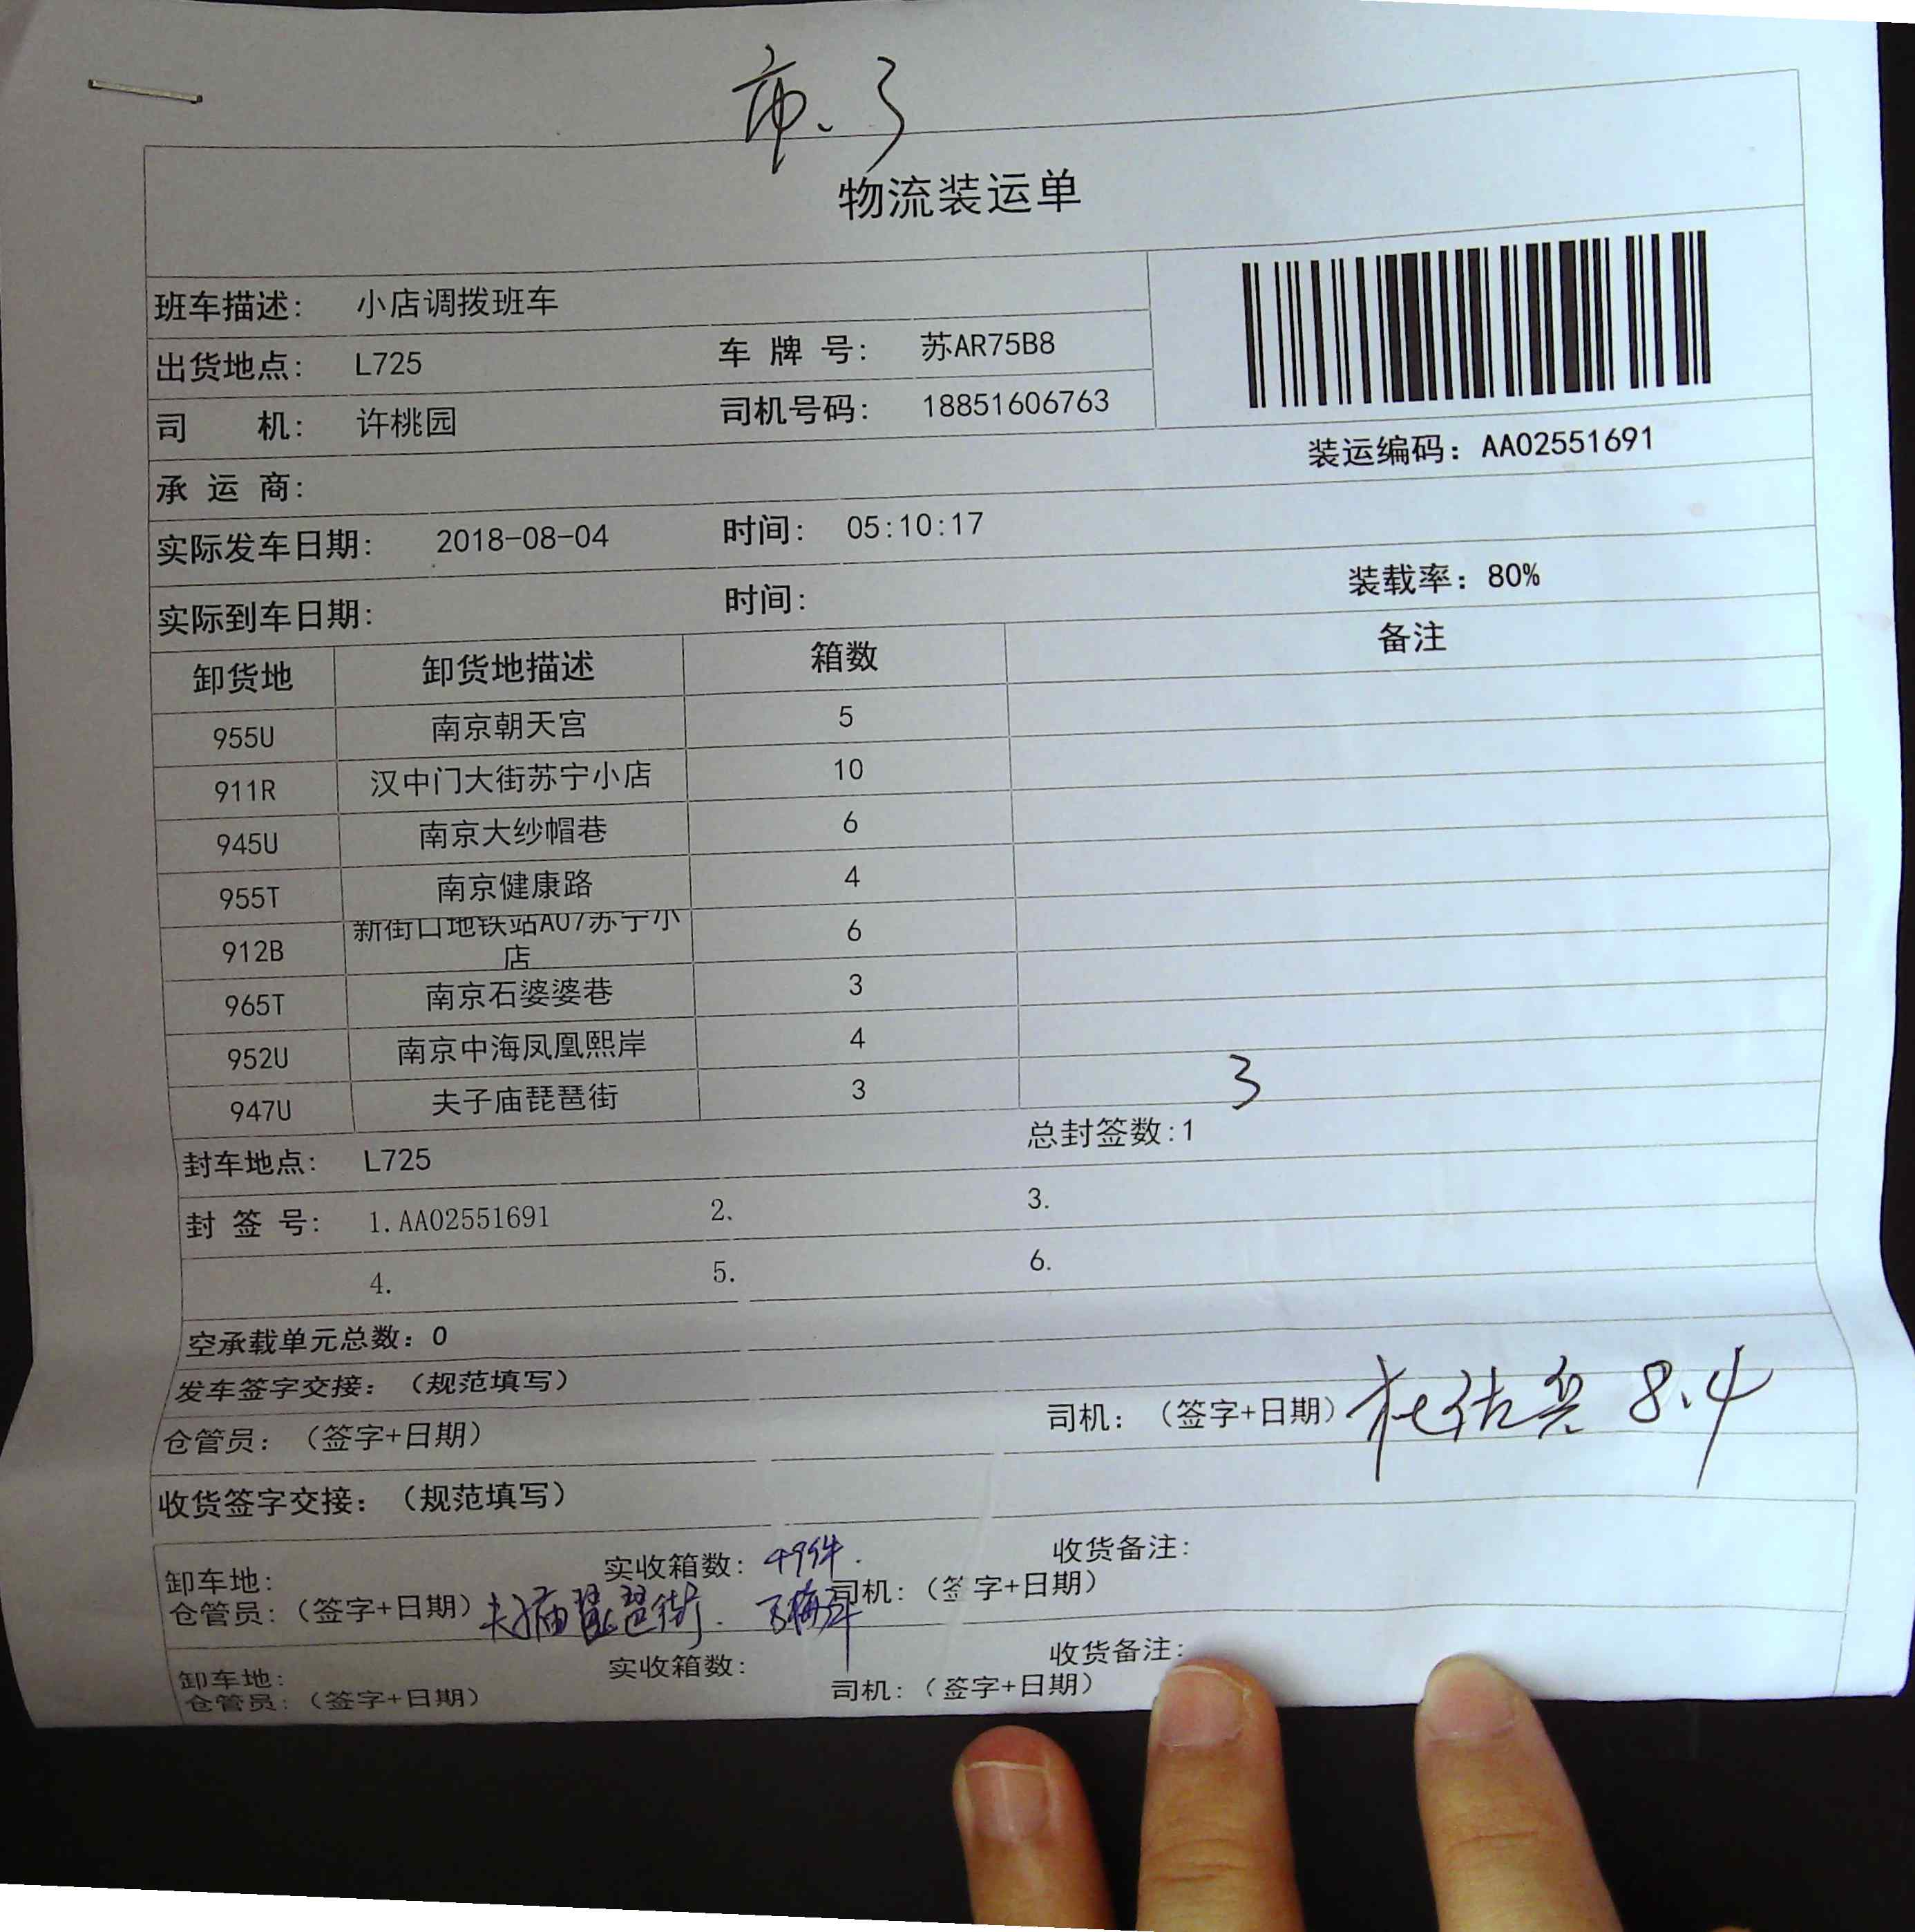 市、3
物流装运单
班车描述: 小店调拨班车
出货地点: L725 车 牌 号: 苏AR75B8
司 机: 许桃园 司机号码: 18851606763
装运编码: AA02551691
承 运 商:
实际发车日期: 2018-08-04 时间: 05:10:17
实际到车日期: 时间: 装载率: 80%
卸货地 卸货地描述 箱数 备注
955U 南京朝天宫 5
911R 汉中门大街苏宁小店 10
945U 南京大纱帽巷 6
955T 南京健康路 4
912B 新街口地铁站A07苏宁小店 6
965T 南京石婆婆巷 3
952U 南京中海凤凰熙岸 4
947U 夫子庙琵琶街 3 3
封车地点: L725 总封签数:1
封 签 号: 1.AA02551691 2. 3.
4. 5. 6.
空承载单元总数: 0
发车签字交接: (规范填写)
仓管员: (签字+日期) 司机: (签字+日期) 杜佑兵 8.4
收货签字交接: (规范填写)
卸车地: 实收箱数: 收货备注:
仓管员: (签字+日期) 夫子庙琵琶街. 司机: (签字+日期)
卸车地: 实收箱数: 收货备注:
仓管员: (签字+日期) 司机: (签字+日期)